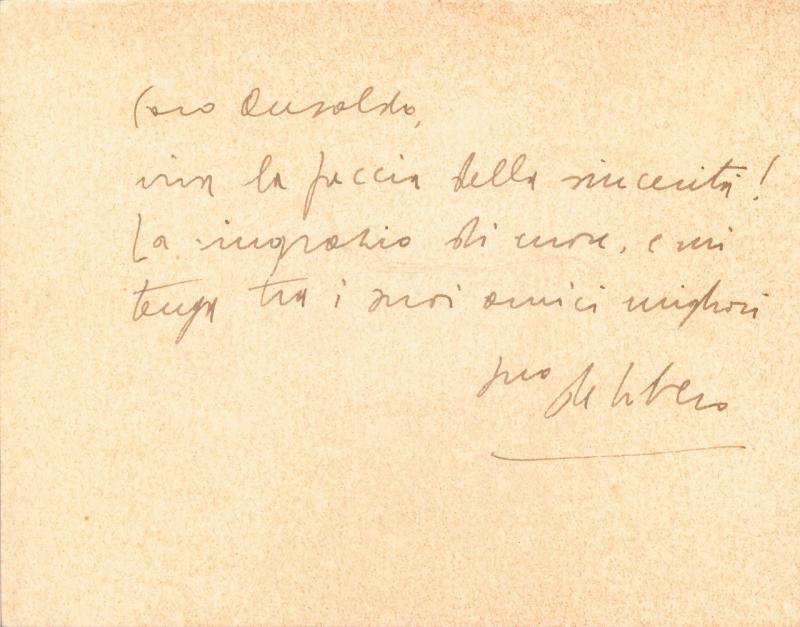 Caro Ansaldo,
viva la faccia della sincerità!
La ringrazio di cuore, e mi
tenga tra i suoi amici migliori
suo de Libero